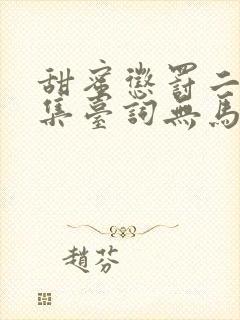 甜蜜懲罰二
集臺詞無馬
趙芬